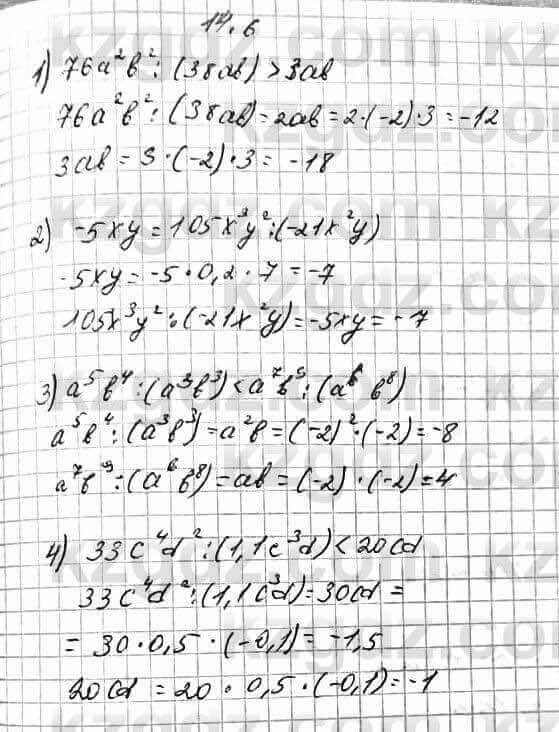 14.6
1) 76a²b² : (38ab) > 3ab
76a²b² : (38ab) = 2ab = 2·(-2)·3 = -12
3ab = 3·(-2)·3 = -18
2) -5xy = 105x³y² : (-21x²y)
-5xy = -5·0,2·7 = -7
105x³y² : (-21x²y) = -5xy = -7
3) a⁵b⁴ : (a³b³) < a⁷b⁹ : (a⁶b⁸)
a⁵b⁴ : (a³b³) = a²b = (-2)²·(-2) = -8
a⁷b⁹ : (a⁶b⁸) = ab = (-2)·(-2) = 4
4) 33c⁴d² : (1,1c³d) < 20cd
33c⁴d² : (1,1c³d) = 30cd =
= 30·0,5·(-0,1) = -1,5
20cd = 20·0,5·(-0,1) = -1